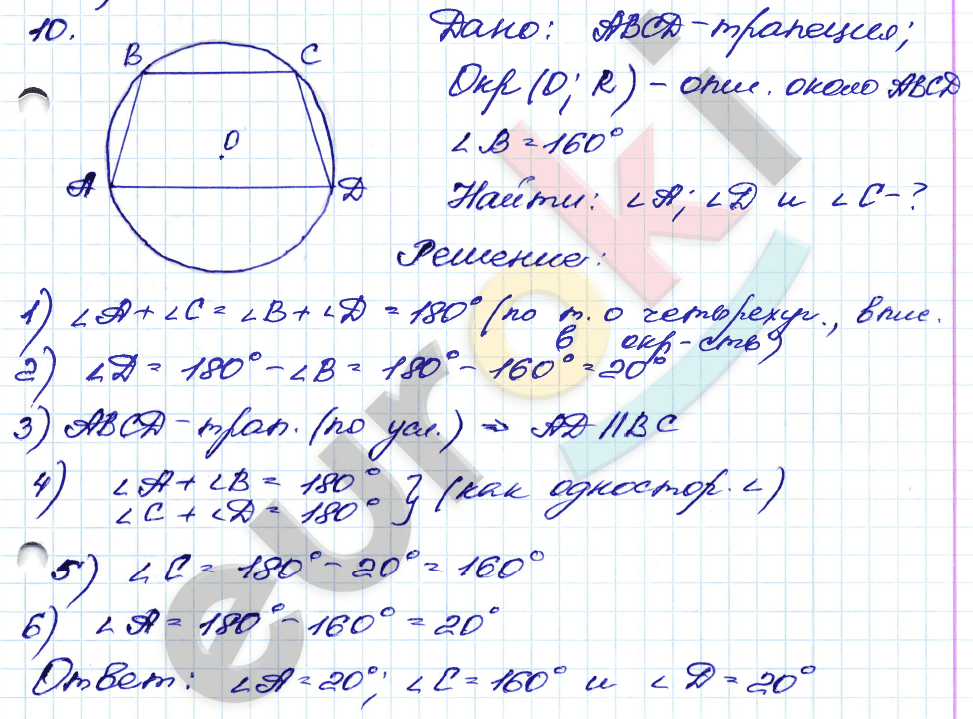 10.
B C
O
A D
Дано: ABCD - трапеция;
Окр (O; R) - опис. около ABCD
∠B = 160°
Найти: ∠A; ∠D и ∠C - ?
Решение:
1) ∠A + ∠C = ∠B + ∠D = 180° (по т. о четырехуг., впис.
в окр-сть)
2) ∠D = 180° - ∠B = 180° - 160° = 20°
3) ABCD - трап. (по усл.) ⇒ AD || BC
4) ∠A + ∠B = 180° } (как одностор. ∠)
∠C + ∠D = 180°
5) ∠C = 180° - 20° = 160°
6) ∠A = 180° - 160° = 20°
Ответ: ∠A = 20°; ∠C = 160° и ∠D = 20°
euroki